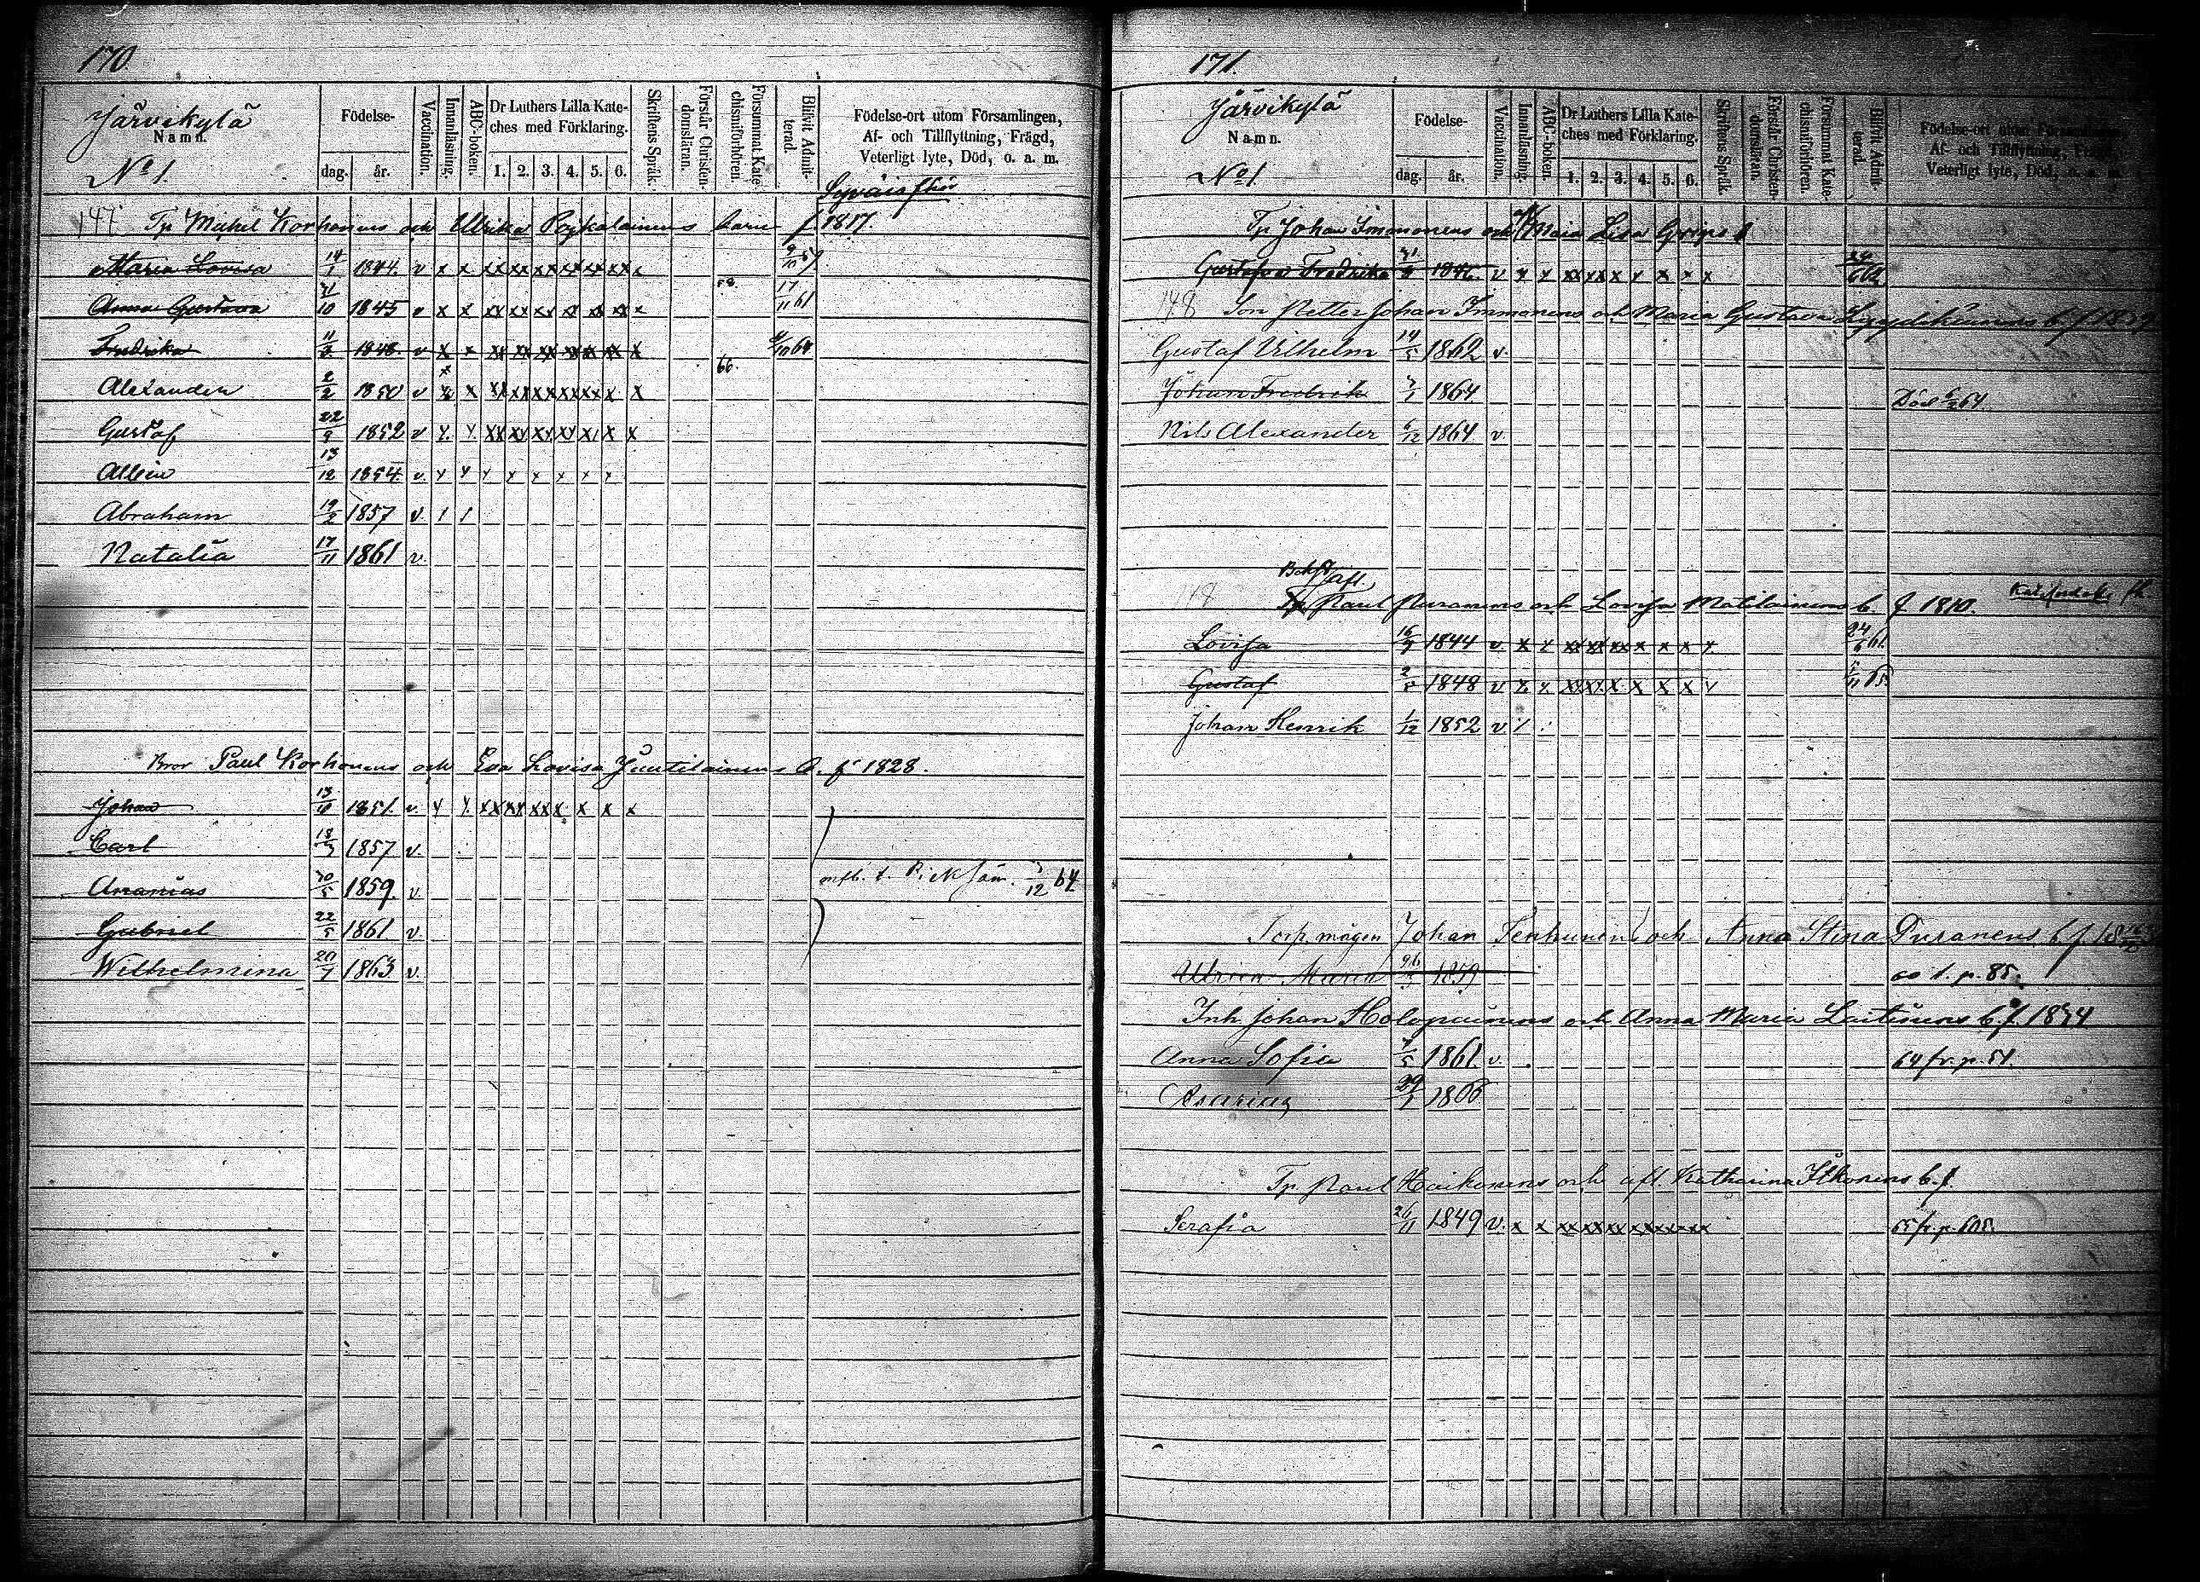 170.
Järvikylä
Namn.
No 1.
Födelse-
dag. år.
Vaccination.
Innanläsning.
ABC-boken.
Dr Luthers Lilla Kate-
ches med Förklaring.
1. 2. 3. 4. 5. 6.
Skriftens Språk.
Förstår Christen-
domsläran.
Försummat Kate-
chismiförhören.
Blifvit Admit-
terad.
Födelse-ort utom Församlingen,
Af- och Tillflyttning, Frägd,
Veterligt lyte, Död, o. a. m.
147 Tp Michel Korhonens och Ulrika Poykalainens barn f. 1817.
Maria Lovisa 14/1 1844. v x x xx xx xx xx xx xx x
Anna Gustava 21/10 1845 v x x xx xx xx xx xx xx x 58. 17/11 61
Fredrika 11/8 1848. v x x xx xx xx xx xx xx x 64
Alexander 2/2 1850 v x x xx xx xx xx xx x x 66.
Gustaf 22/9 1852 v x x xx xx xx xx x x x
Albin 13/12 1854. v. x x x x x x x x
Abraham 19/2 1857 v. / /
Natalia 17/11 1861 v.
Bror Paul Korhonens och Eva Lovisa Juutilainens b. f. 1828.
Johan 13/6 1851. v. x x xx xx xx x x x x
Carl 18/3 1857 v.
Ananias 30/5 1859. v
infl. t. Pieksäm. 3/12 64
Gabriel 22/5 1861 v.
Wilhelmina 20/7 1863 v.
171.
Järvikylä
Namn.
No 1.
Födelse-
dag. år.
Vaccination.
Innanläsning.
ABC-boken.
Dr Luthers Lilla Kate-
ches med Förklaring.
1. 2. 3. 4. 5. 6.
Skriftens Språk.
Förstår Christen-
domsläran.
Försummat Kate-
chismiförhören.
Blifvit Admit-
terad.
Födelse-ort utom Församlingen,
Af- och Tillflyttning, Frägd,
Veterligt lyte, Död, o. a. m.
Tp Johan Immonens och Maia Lisa Grips
Gustava Fredrika 1846. v x x xx xx x x x x x 24/6 62
148 Son Petter Johan Immonens och Maria Gustava
Gustaf Vilhelm 14/5 1862 v.
Johan Fredrik 3/1 1864 Död 64
Nils Alexander 6/12 1864 v.
afl.
Tp Paul Puranens och Lovisa Matilainens b. f 1810.
Lovisa 16/7 1844 v. x x xx xx xx x x x x. 24/6 61.
Gustaf 2/5 1848 v x x xx xx x x x x x
Johan Henrik 1/12 1852 v
Torp. mågen Johan Tenhunen och Anna Stina Puranens b. f.
Ulrica Maria 26/3 1859 60 t. p. 85.
Inh Johan Holopainens och Anna Maria Laitinens b. f. 1834
Anna Sofia 1861. v. 64 fr. p. 51.
Asarias 29/1
Tp. Paul Haikonens och afl. Katharina Ilkonens b. f.
Serafia 26/11 1849 v. x x xx xx xx xx xx xx 65 fr. p. 605.